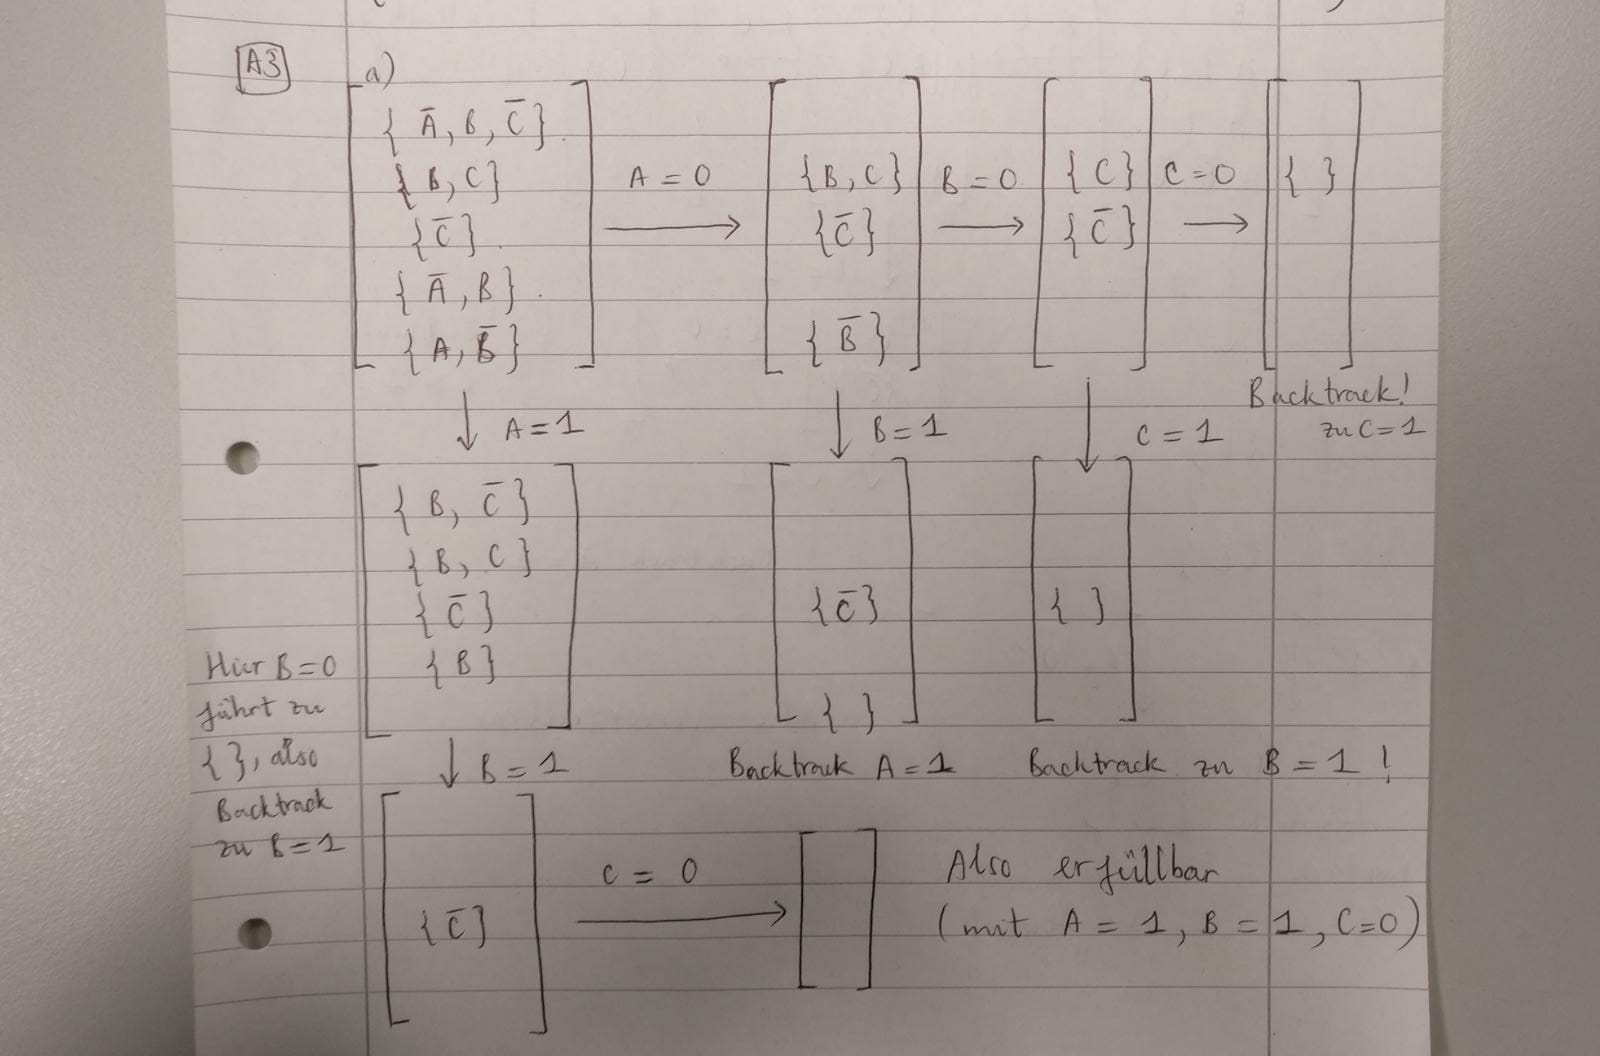 A3 a)
{ A̅, B, C̅ }
{ B, C } A = 0 { B, C } B = 0 { C } C = 0 { }
{ C̅ } ⟶ { C̅ } ⟶ { C̅ } ⟶
{ A̅, B }
{ A, B̅ } { B̅ }
Backtrack!
↓ A = 1 ↓ B = 1 ↓ C = 1 zu C = 1
{ B, C̅ }
{ B, C }
{ C̅ } { C̅ } { }
{ B }
{ }
Hier B = 0
führt zu
{ }, also
Backtrack
zu B = 1
↓ B = 1 Backtrack A = 1 Backtrack zu B = 1 !
{ C̅ } C = 0 ⟶ [ ] Also erfüllbar
(mit A = 1, B = 1, C = 0)